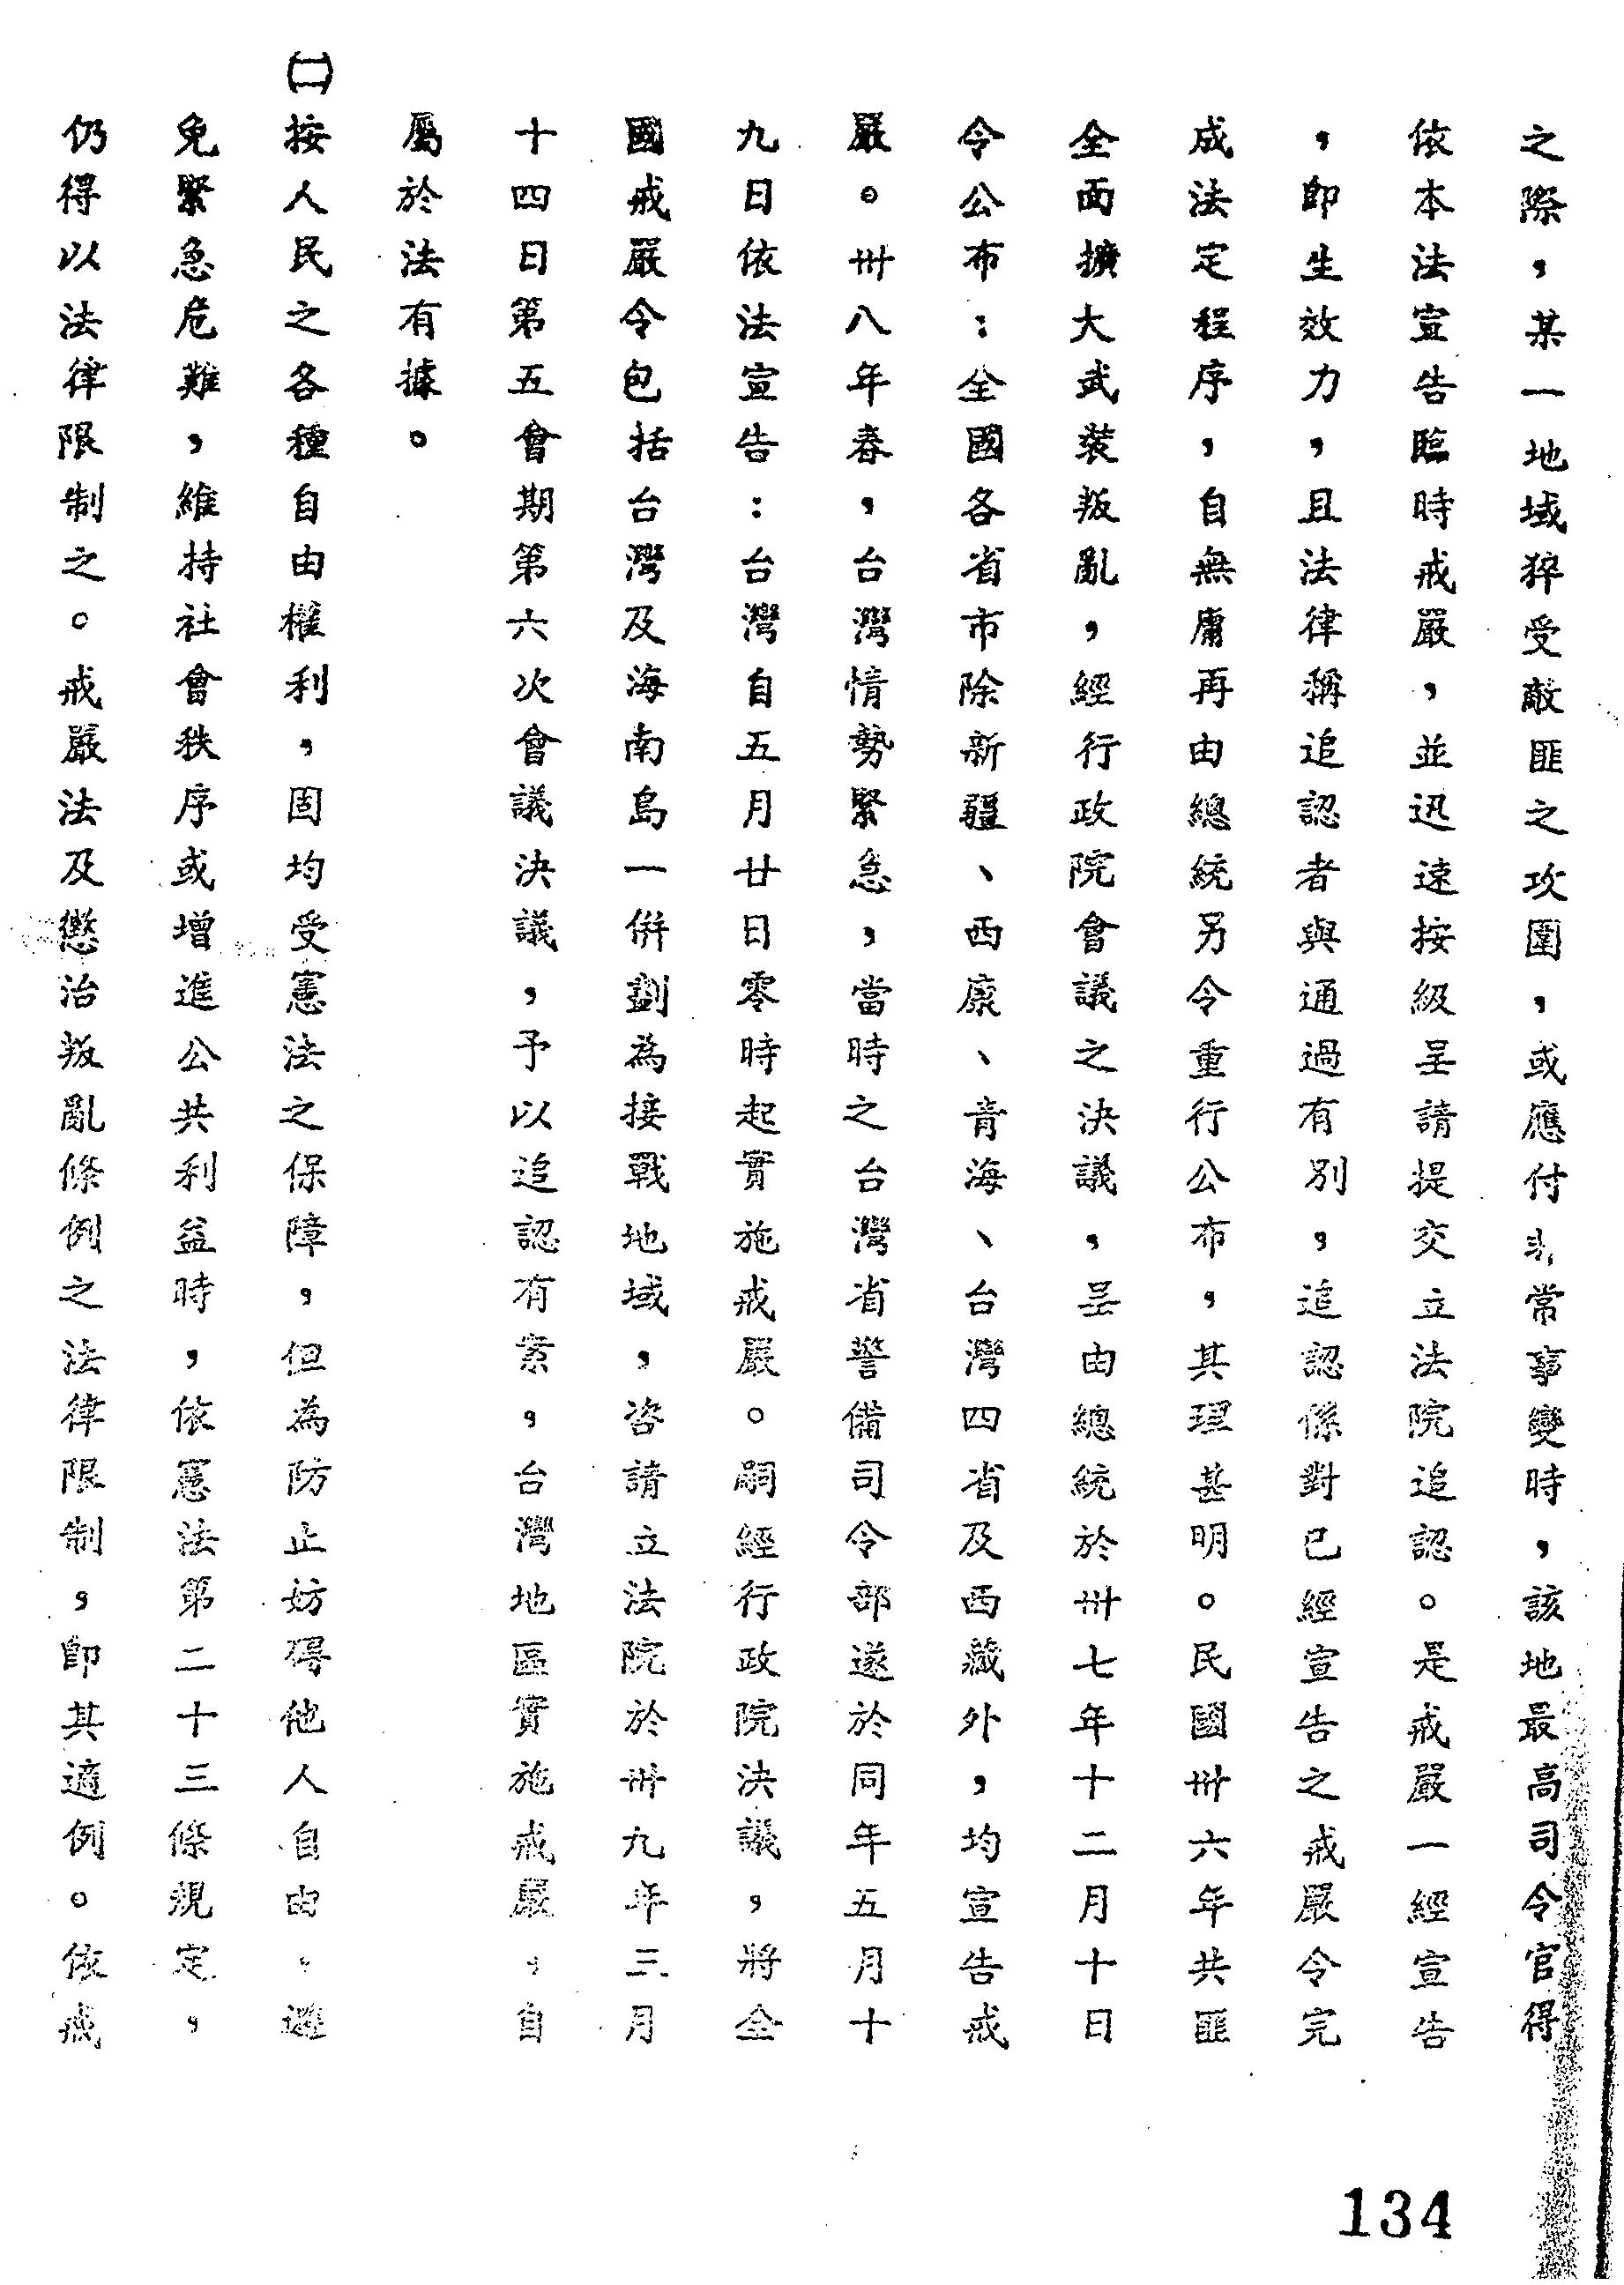 之際，某一地域猝受敵匪之攻圍，或應付非常事變時，該地最高司令官得
依本法宣告臨時戒嚴，並迅速按級呈請提交立法院追認。是戒嚴一經宣告
，即生效力，且法律稱追認者與通過有別，追認係對已經宣告之戒嚴令完
成法定程序，自無庸再由總統另令重行公布，其理甚明。民國卅六年共匪
全面擴大武裝叛亂，經行政院會議之決議，呈由總統於卅七年十二月十日
令公布：全國各省市除新疆、西康、青海、台灣四省及西藏外，均宣告戒
嚴。卅八年春，台灣情勢緊急，當時之台灣省警備司令部遂於同年五月十
九日依法宣告：台灣自五月廿日零時起實施戒嚴。嗣經行政院決議，將全
國戒嚴令包括台灣及海南島一併劃為接戰地域，咨請立法院於卅九年三月
十四日第五會期第六次會議決議，予以追認有案，台灣地區實施戒嚴，自
屬於法有據。
㈡按人民之各種自由權利，固均受憲法之保障，但為防止妨礙他人自由、避
免緊急危難，維持社會秩序或增進公共利益時，依憲法第二十三條規定，
仍得以法律限制之。戒嚴法及懲治叛亂條例之法律限制，即其適例。依戒
134